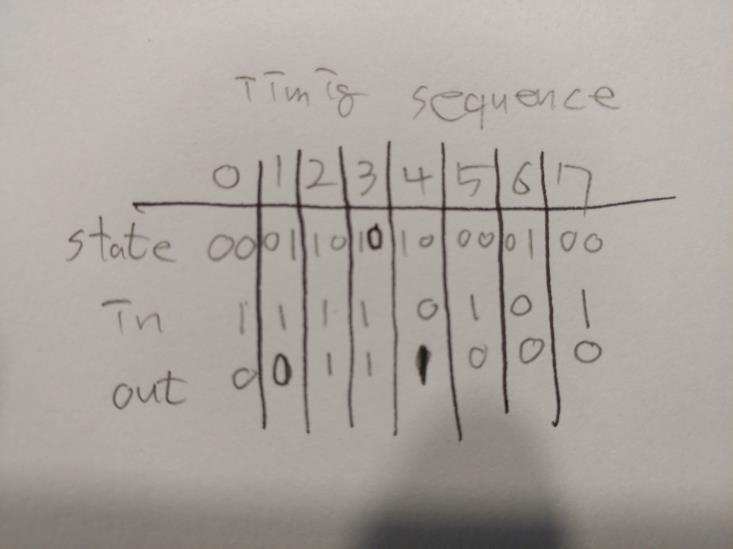 Timig sequence
0 1 2 3 4 5 6 7
state 00 01 10 10 10 00 01 00
In 1 1 1 1 0 1 0 1
out 0 0 1 1 1 0 0 0